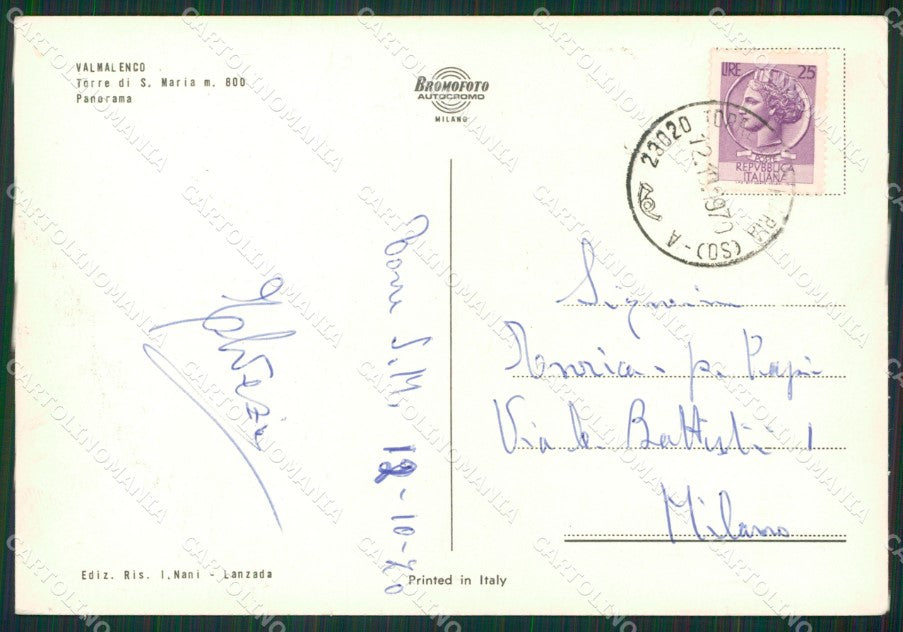 VALMALENCO
Torre di S. Maria m. 800
Panorama
BROMOFOTO
AUTOCROMO
MILANO
LIRE 25
REPVBBLICA
ITALIANA
23020 TORR
(SO) - A
Torre S. M. 12-10-70
Via
Battisti 1
Milano
Ediz. Ris. I. Nani - Lanzada
Printed in Italy
CARTOLINOMANIA